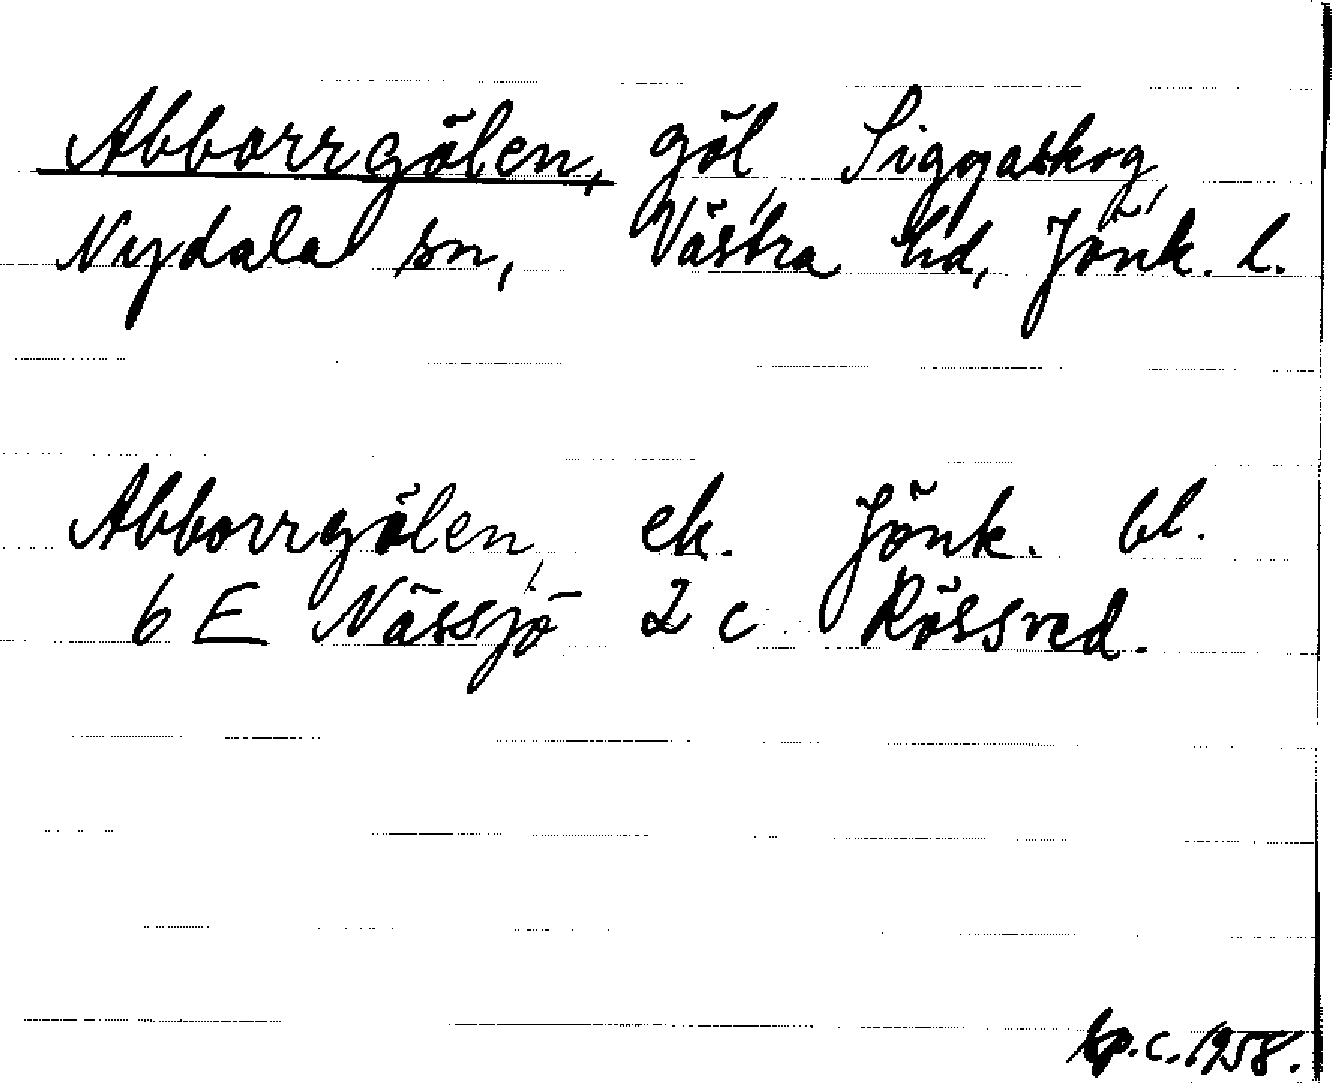 Abborrgölen, göl, Siggaskog,
Nydala sn, Västra hd, Jönk. l.
Abborrgölen, ek. Jönk. bl.
6 E Nässjö 2 c Rössved.
kp.c. 1958.